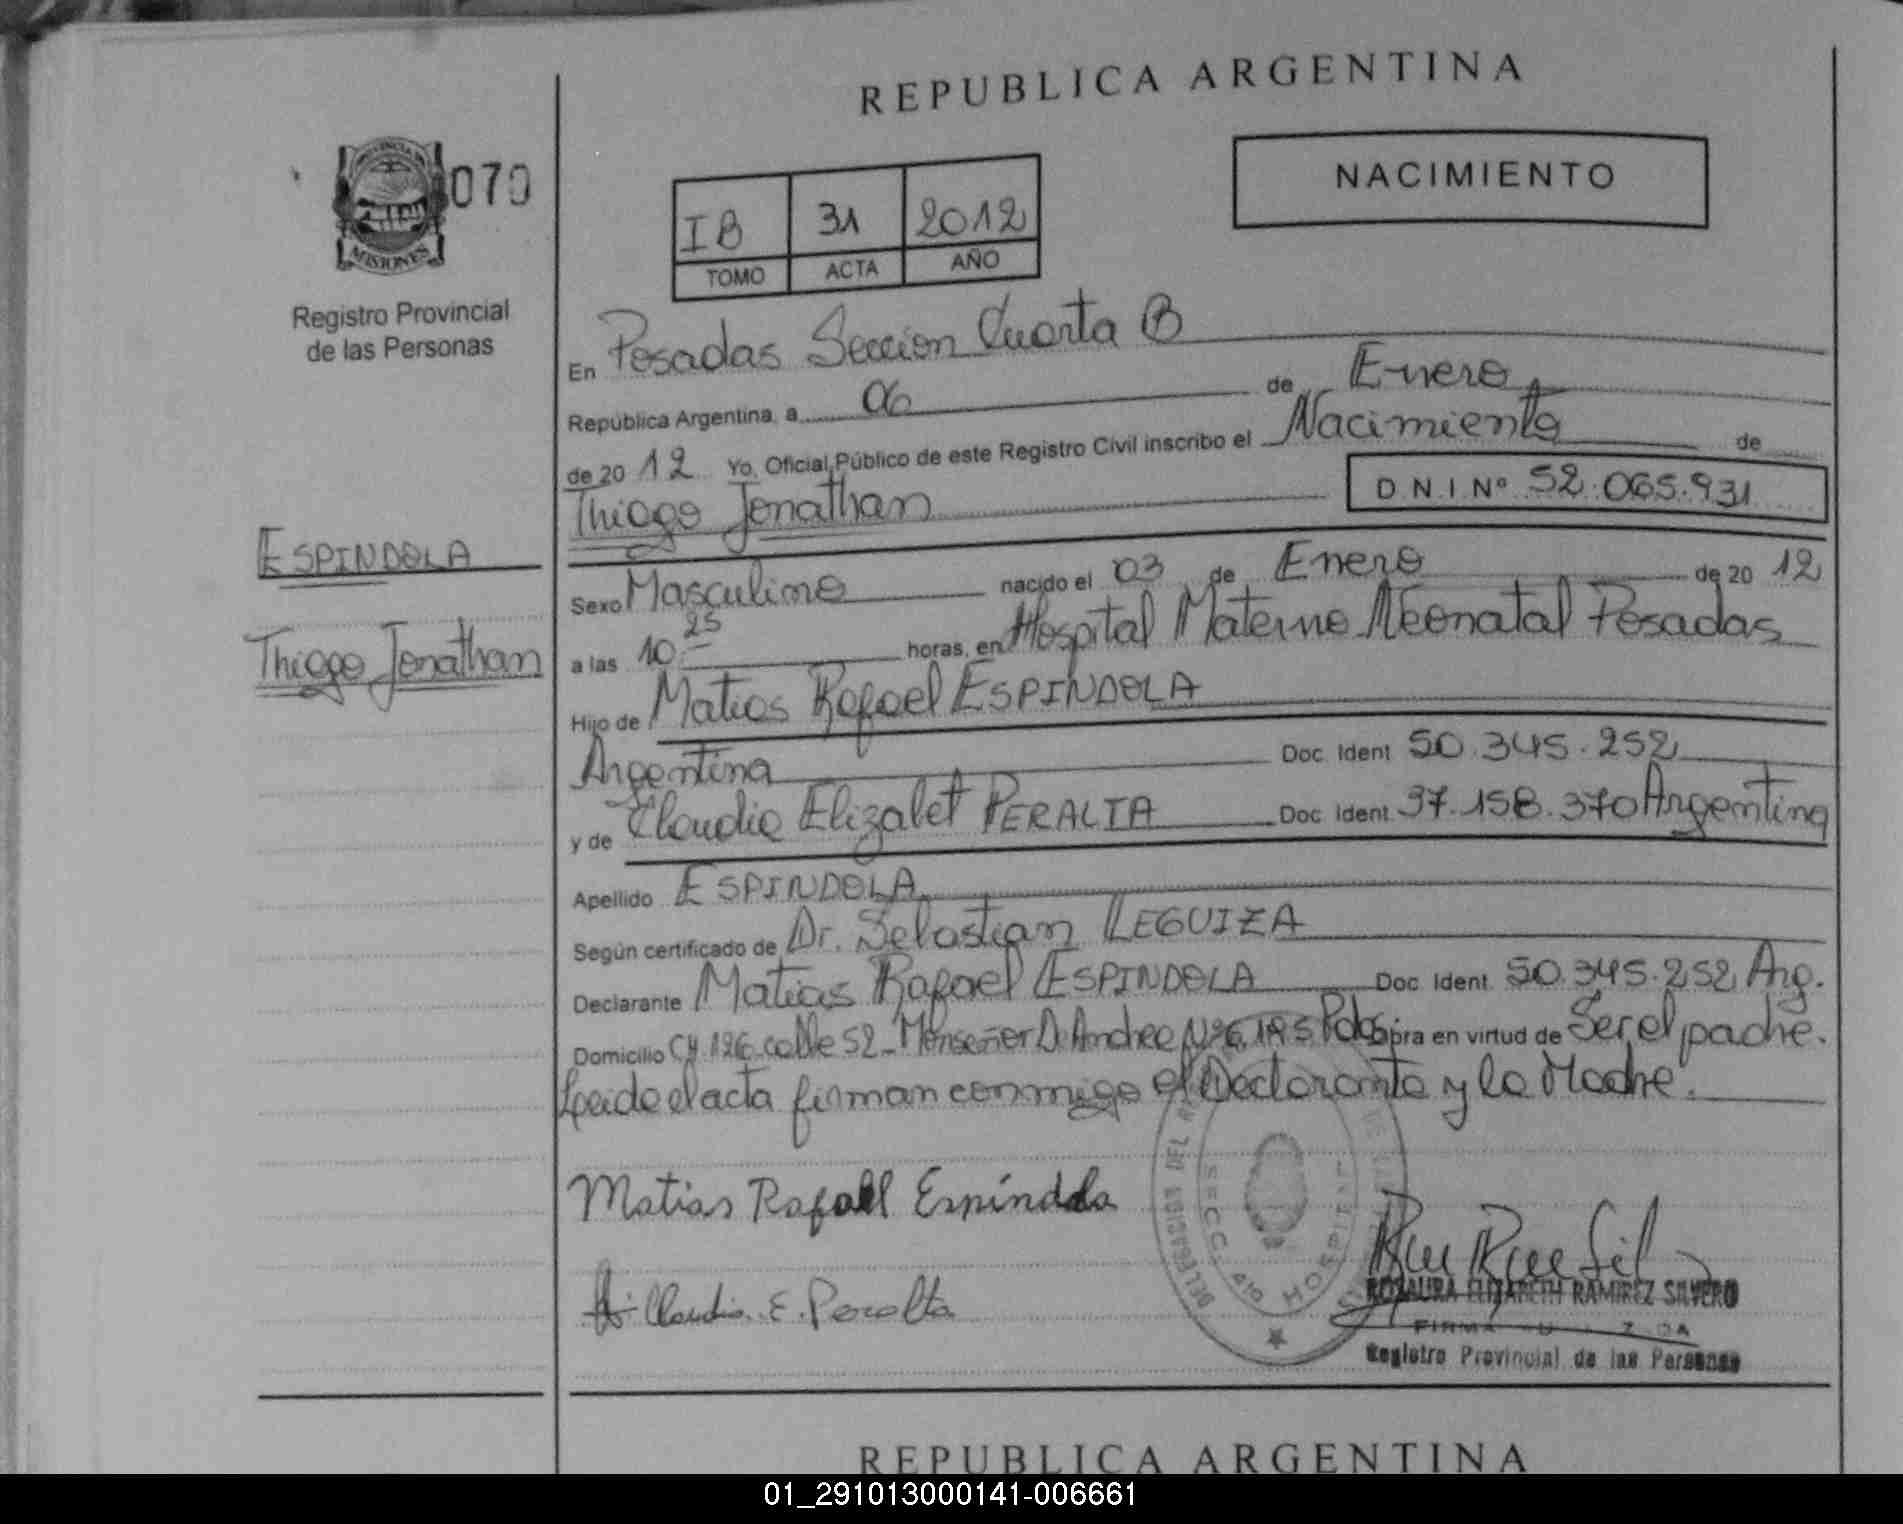 REPUBLICA ARGENTINA
070
MISIONES
Registro Provincial
de las Personas
NACIMIENTO
IB 31 2012
TOMO ACTA AÑO
En Posadas Seccion Cuarta B
República Argentina, a 06 de Enero
de 2012 Yo, Oficial Público de este Registro Civil inscribo el Nacimiento de
Thiago Jonathan D N.I Nº 52.065.931
ESPINDOLA
Thiago Jonathan
Sexo Masculino nacido el 03 de Enero de 2012
a las 10 25 horas, en Hospital Materno Neonatal Posadas
Hijo de Matias Rafael ESPINDOLA
Argentina Doc Ident 50.345.252
y de Claudia Elizabet PERALTA Doc Ident 37.158.370 Argentina
Apellido ESPINDOLA
Según certificado de Dr. Sebastian LEGUIZA
Declarante Matias Rafael ESPINDOLA Doc Ident. 50.345.252 Arg.
Domicilio CH 126 calle 52 - Monseñor D. Andrea Nº 6195 Pdas obra en virtud de Ser el padre.
Leida el acta firman conmigo el Declarante y la Madre.
Matias Rafael Espíndola
Claudia. E. Peralta
SECC. 4ta HOSPITAL
ROSAURA ELIZABETH RAMIREZ SILVERO
Registro Provincial de las Personas
REPUBLICA ARGENTINA
01_291013000141-006661